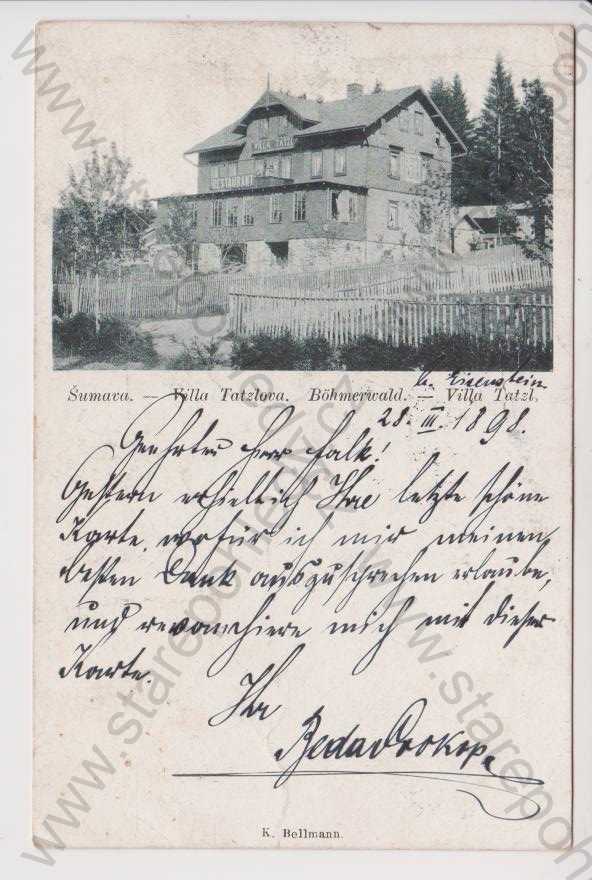 VILLA TATZL
RESTAURANT
Šumava. — Villa Tatzlova. Böhmerwald. — Villa Tatzl.
b. Eisenstein
28. III. 1898.
Geehrter Herr Falk!
Gestern erhielt ich Ihre letzte schöne
Karte, wofür ich mir meinen
besten Dank auszusprechen erlaube,
und revanchiere mich mit dieser
Karte.
Ihr
Beda Prokop.
K. Bellmann.
www.starepohledy.cz